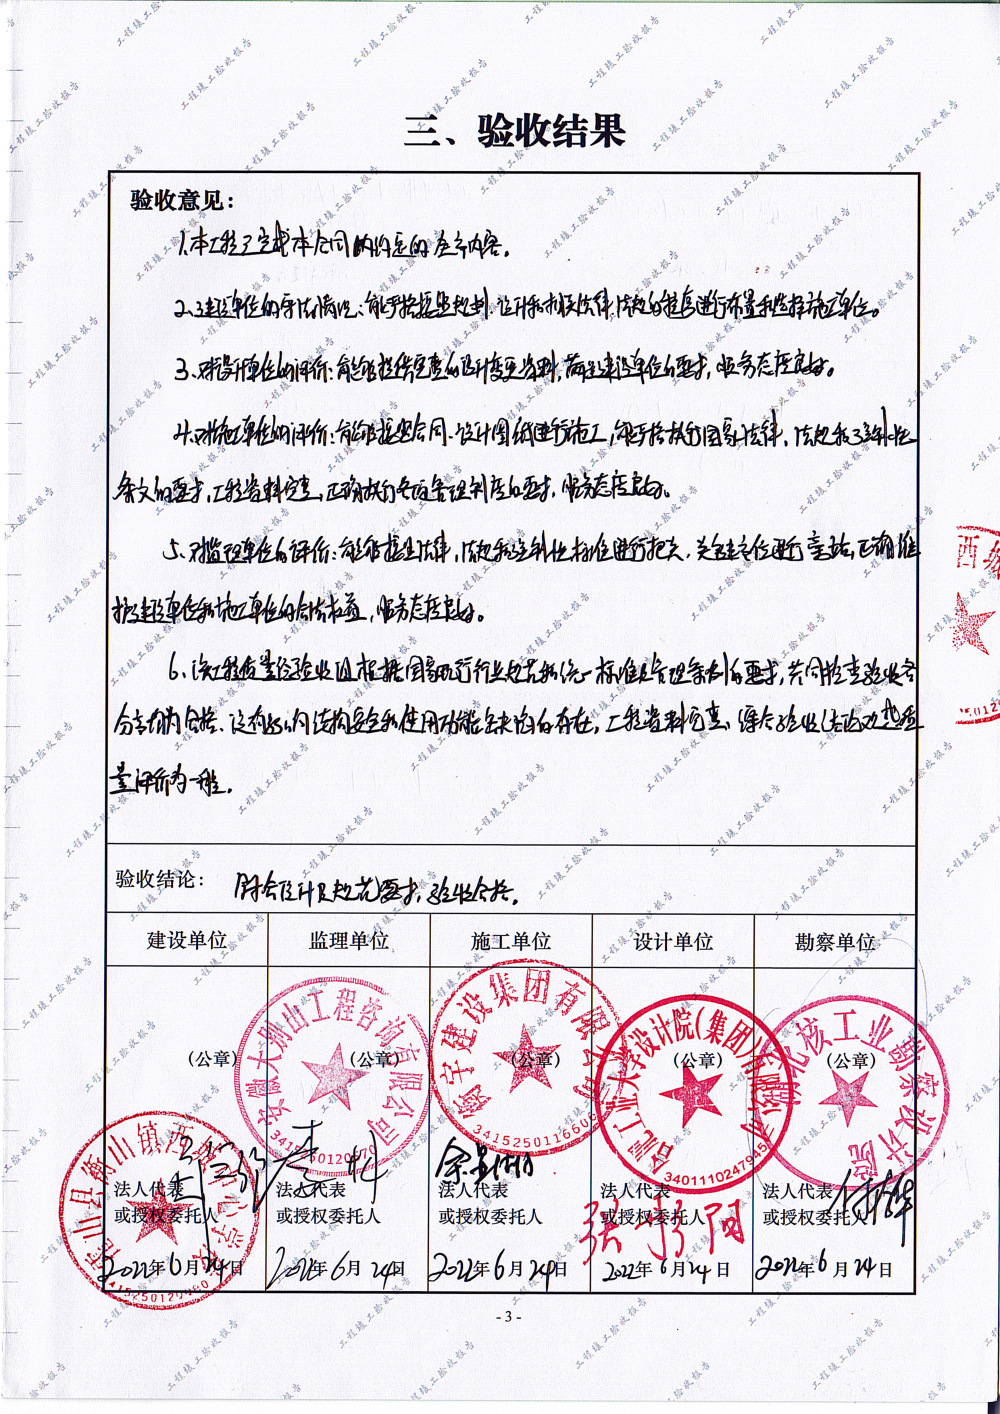 三、验收结果
验收意见：
1.本工程已完成本合同内约定的全部内容。
2.建设单位的守法情况：能严格按照规划、设计和相关法律、法规的程序进行布置和选择施工单位。
3、对设计单位的评价：能够提供完整的设计变更资料，满足建设单位的要求，服务态度良好。
4.对施工单位的评价：能够按照合同、设计图纸进行施工，能严格执行国家法律、法规和强制性
条文的要求，工程资料完整、正确执行各项管理制度的要求，服务态度良好。
5、对监理单位的评价：能够按照法律、法规和强制性标准进行把关，关键部位进行旁站，正确维
护建设单位和施工单位的合法权益，服务态度良好。
6、该工程质量经验收组根据国家现行行业规范和统一标准及管理条例的要求，共同检查验收各
分部均为合格、没有影响结构安全和使用功能缺陷的存在，工程资料完整、综合验收
量评价为一般。
验收结论：
符合设计及规范要求，验收合格。
建设单位 监理单位 施工单位 设计单位 勘察单位
（公章） （公章） （公章） （公章） （公章）
安徽大别山工程咨询有限公司
建设集团有限公司
3415250116606
合肥工业大学设计院（集团）有限公司
3401110247945
化核工业勘察设计院
霍山县衡山镇西
法人代表 法人代表 法人代表 法人代表 法人代表
或授权委托人 或授权委托人 或授权委托人 或授权委托人 或授权委托人
2022年6月24日 2022年6月24日 2022年6月24日 2022年6月24日 2022年6月24日
- 3 -
工程竣工验收报告